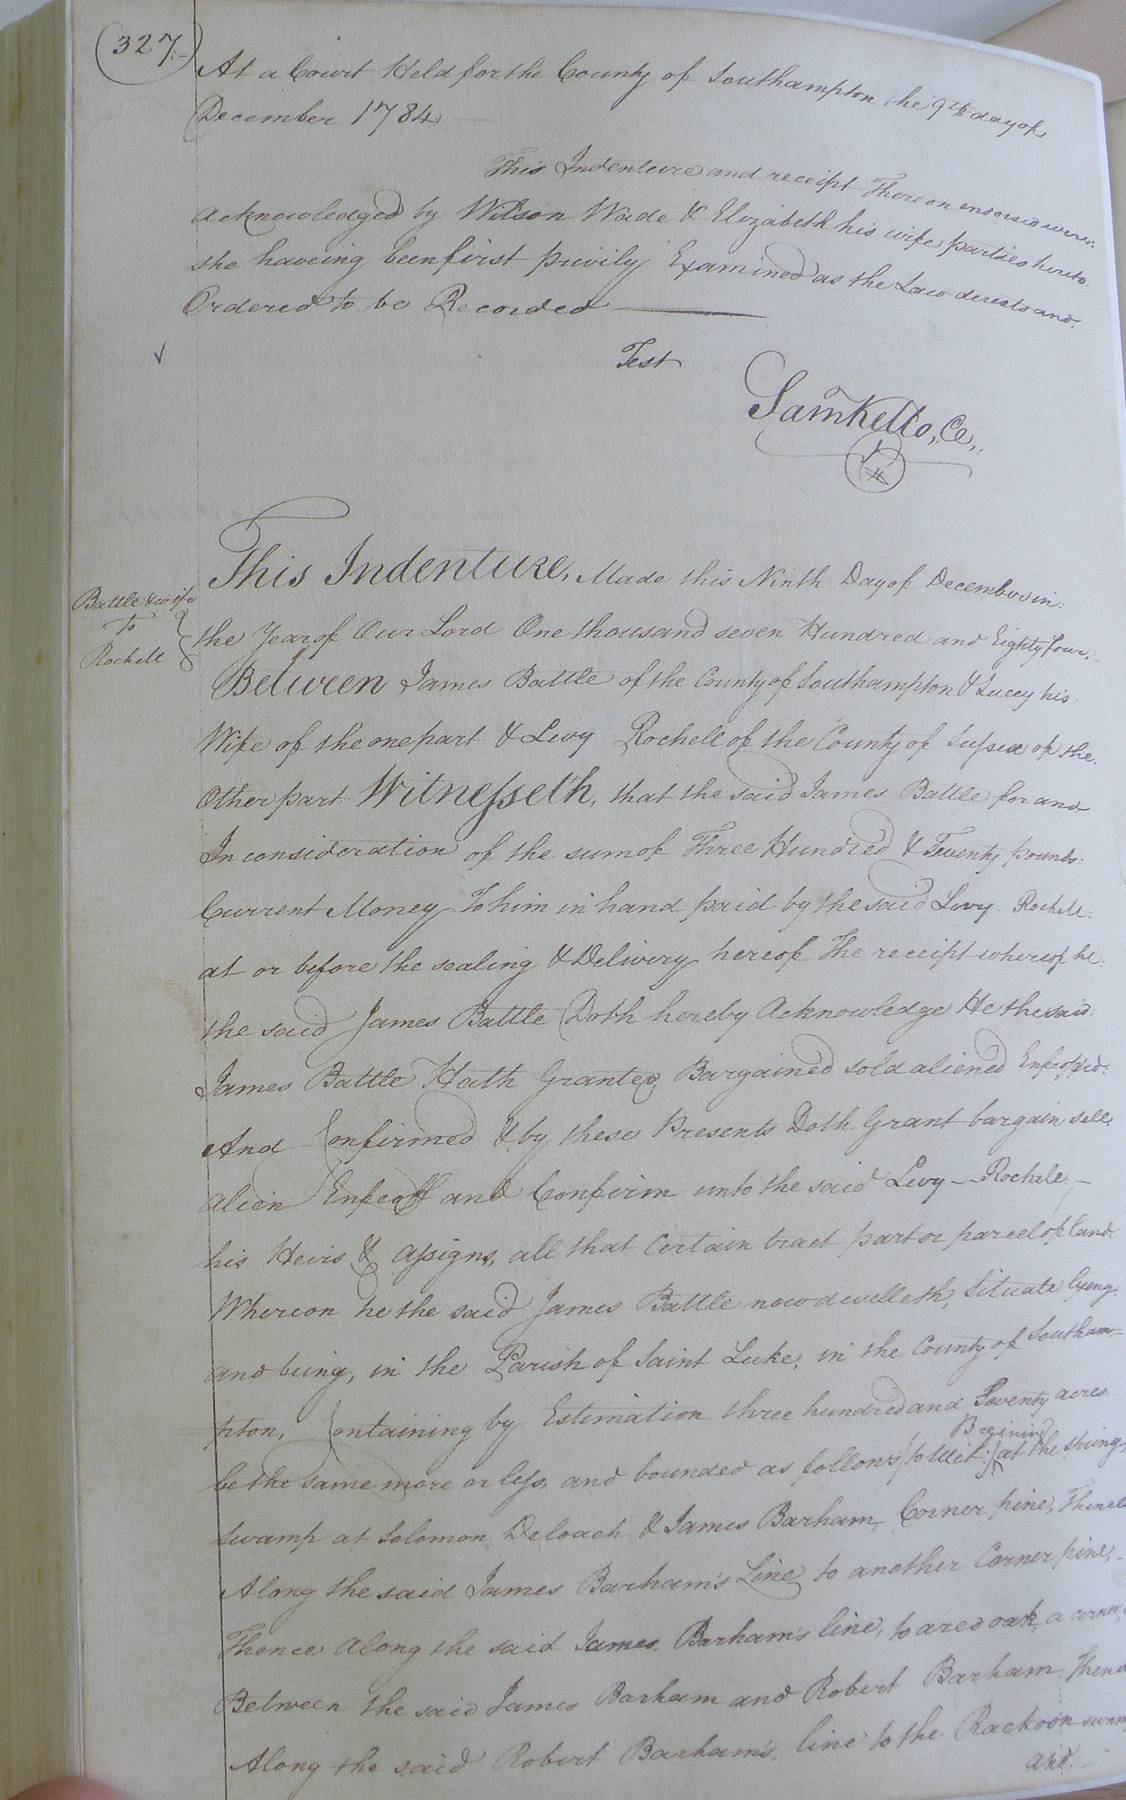 327.
At a Court Held for the County of Southampton the 9th day of
December 1784
This Indenture and receipt Thereon endorsed were
Acknowledged by Wilson Wade & Elezabeth his wife parties hereto
she haveing been first privily Examined as the Law derects and
Ordered to be Recorded
Test
Sam Kello, Ce,
Battle & wife
To
Rochell
This Indenture, Made this Ninth Day of December in
the Year of Our Lord One thousand seven Hundred and Eighty four,
Between James Battle of the County of Southampton & Lucey his
Wife of the one part & Levy Rochell of the County of Sussex of the
Other part Witnesseth, that the said James Battle for and
In consideration of the sum of Three Hundred & Twenty pounds
Current Money To him in hand paid by the said Levy Rochell
at or before the sealing & Delivery hereof The receipt whereof he
the said James Battle Doth hereby Acknowledge He the said
James Battle Hath Granted Bargained sold aliened Enfeoffed
And Confirmed & by these Presents Doth Grant bargain sell
alien Enfeoff and Confirm unto the said Levy Rochell
his Heirs & assigns, all that Certain tract part or parcel of land
Whereon he the said James Battle now dwelleth, Situate lyeng
and being, in the Parish of Saint Luke, in the County of Southam=
pton, Containing by Estimation three hundred and Seventy acres
Begining
be the same more or less, and bounded as follows (to Wit) at the spring
swamp at Solomon Deloach & James Barham, Corner pine, Thence
Along the said James Barham's Line to another Corner pine,
Thence along the said James Barham's line, to a red oak, a corner,
Between the said James Barham and Robert Barham. Thence
Along the said Robert Barham's, line to the Rackoon swamp
and